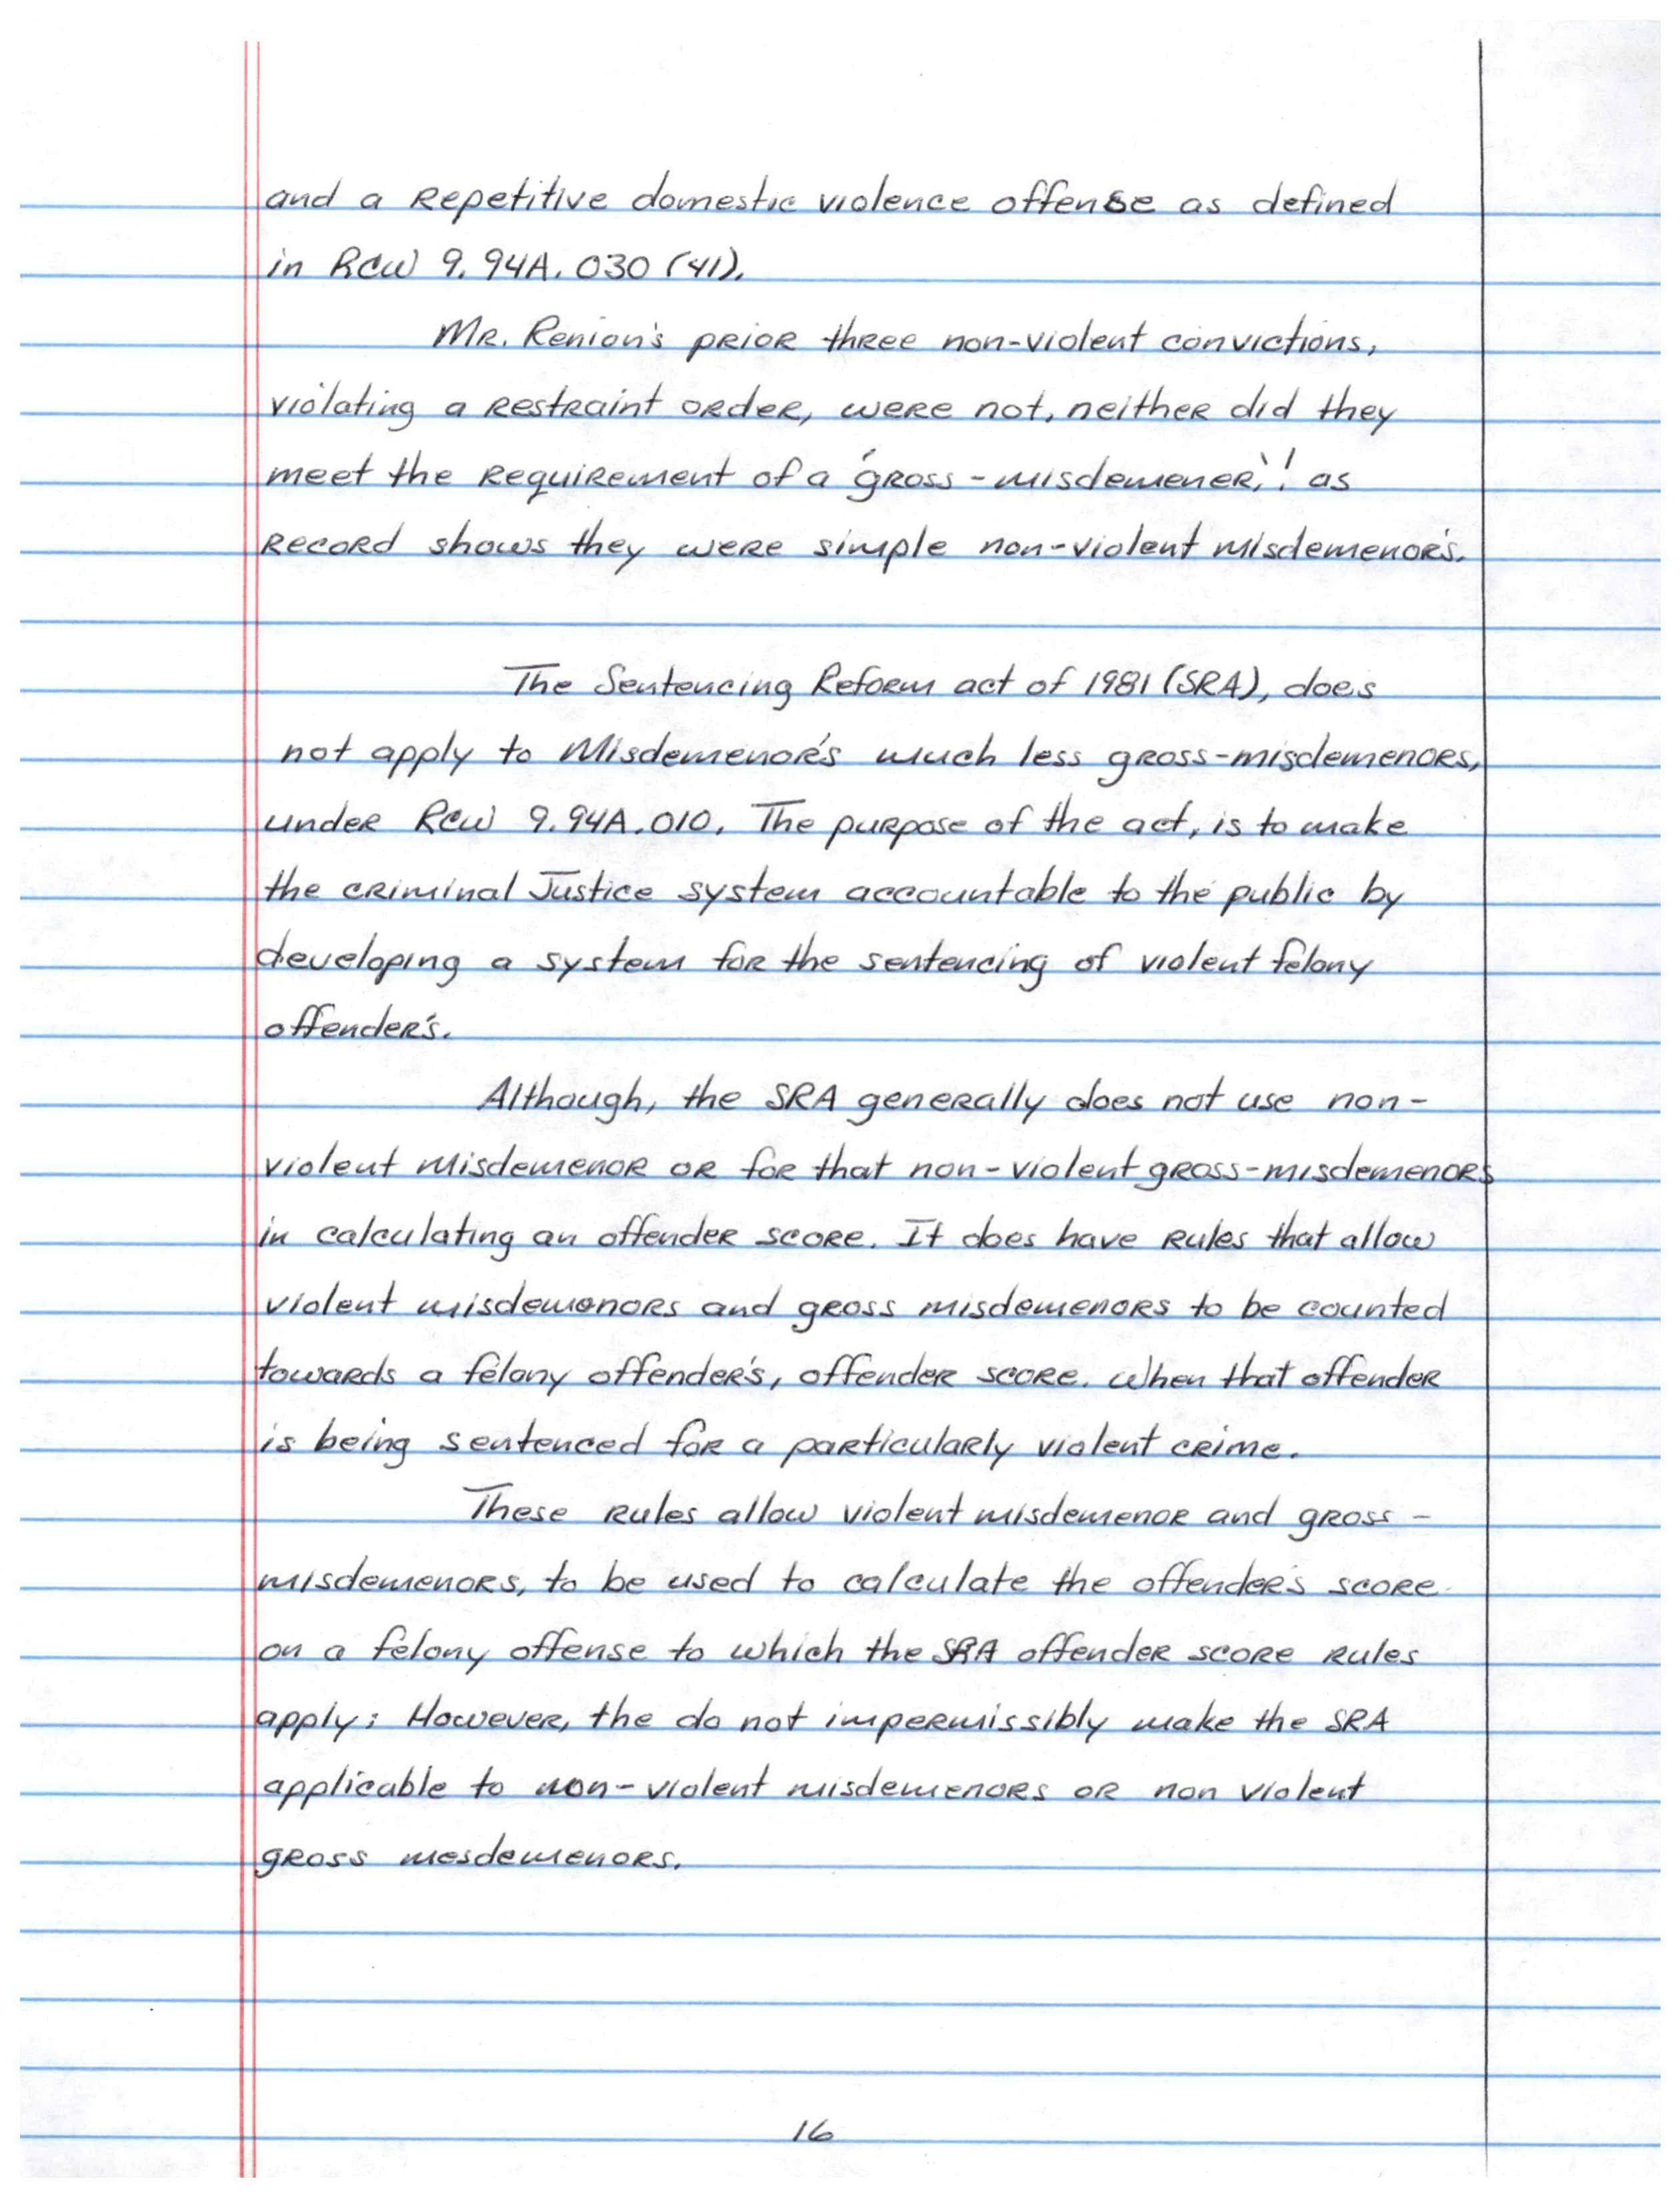 and a Repetitive domestic violence offense as defined
in RCW 9.94A.030 (41).
Mr. Renion's prior three non-violent convictions,
violating a restraint order, were not, neither did they
meet the requirement of a "gross-misdemener," as
record shows they were simple non-violent misdemenor's.
The Sentencing Reform act of 1981 (SRA), does
not apply to Misdemenor's much less gross-misdemenors,
under RCW 9.94A.010. The purpose of the act, is to make
the criminal Justice system accountable to the public by
developing a system for the sentencing of violent felony
offender's.
Although, the SRA generally does not use non-
violent misdemenor or for that non-violent gross-misdemenors
in calculating an offender score. It does have rules that allow
violent misdemonors and gross misdemenors to be counted
towards a felony offender's, offender score. When that offender
is being sentenced for a particularly violent crime.
These rules allow violent misdemenor and gross-
misdemenors, to be used to calculate the offender's score
on a felony offense to which the SRA offender score rules
apply; However, the do not impermissibly make the SRA
applicable to non-violent misdemenors or non violent
gross mesdemenors.
16